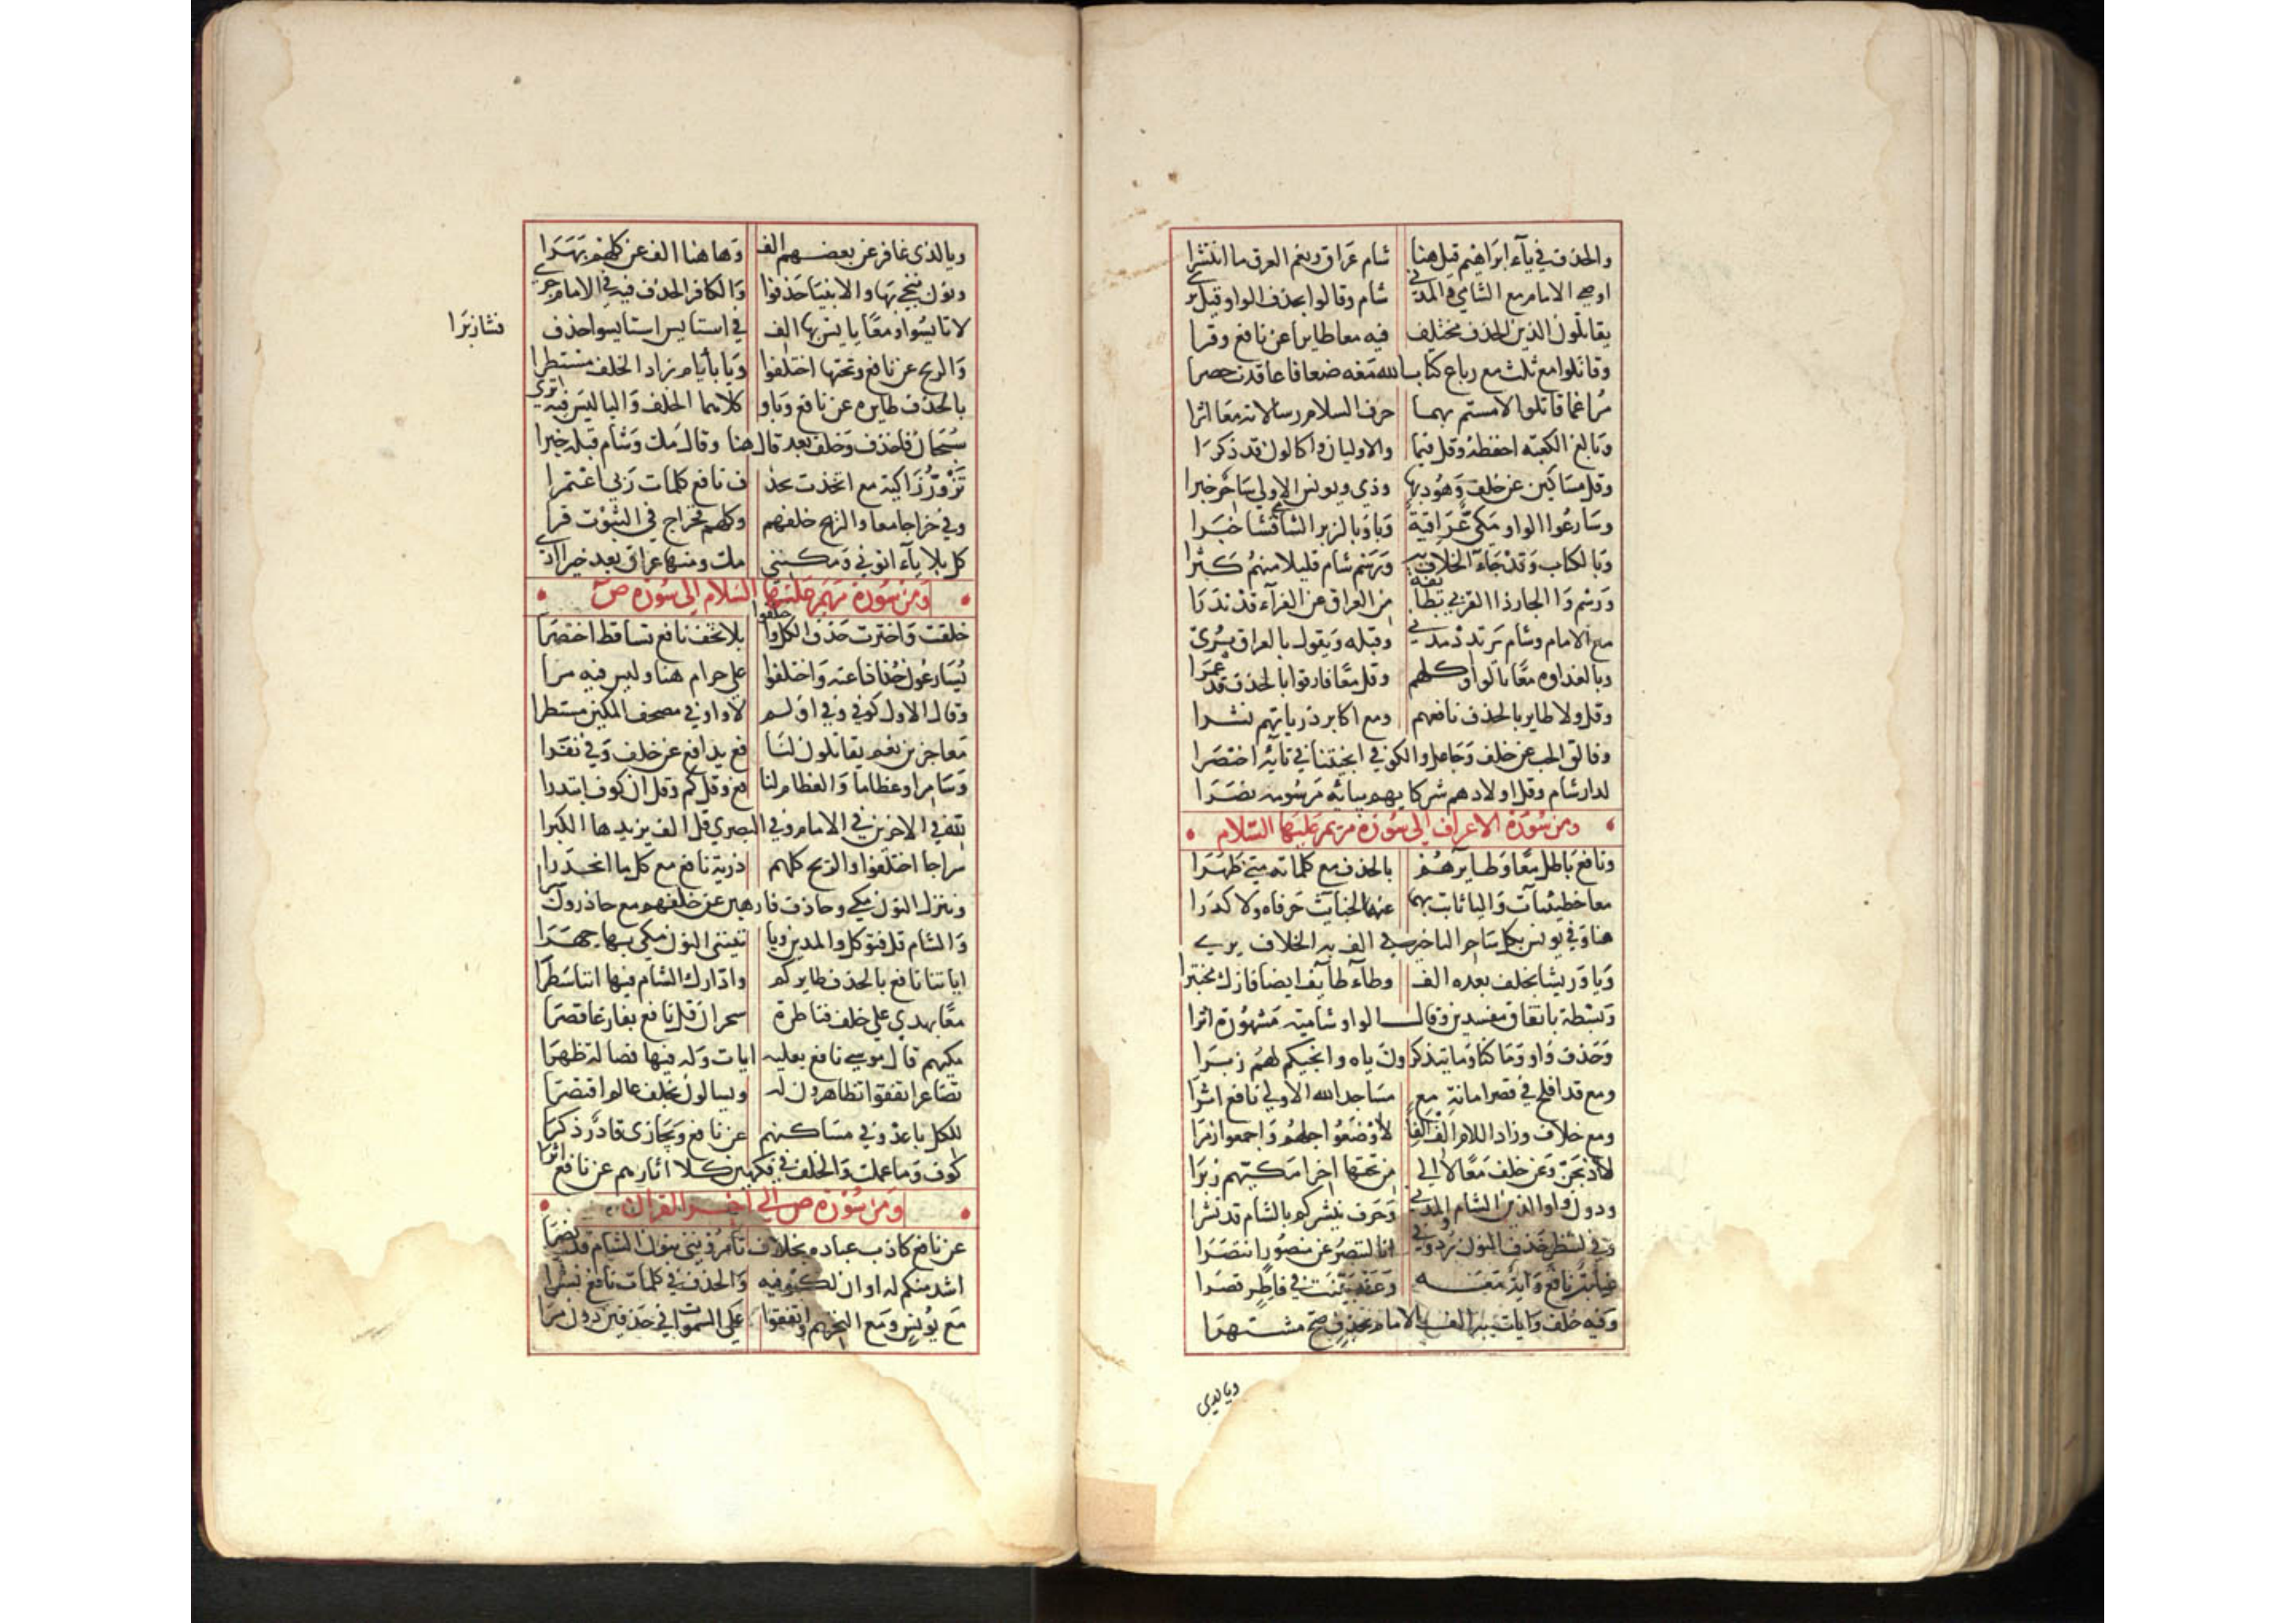 والحذف في ياء ابراهيم قيل هنا شام عراق ونعم العرق ما انتشرا
اوصى الامام مع الشامي والمدني شام وقالوا بحذف الواو قبل يرى
يقاتلون الذين الحذف مختلف فيه معا طايرا عن نافع وقرا
وقاتلوا مع ثلث مع رباع كتاب الله معه ضعافا عاقدت حصرا
مراغما قاتلوا لامستم بهما حرف السلام رسالاته معا اثرا
وبالغ الكعبة احفظه وقل قيما والاوليان واكالون قد ذكرا
وقل مساكين عن خلف وهود بها وذي ويونس الاولى ساحر خبرا
وسارعوا الواو مكي عراقية وبا وبالزبر الشامي فشا خبرا
وبالكتاب وقد جاء الخلاف به ورسم شام قليلا منهم كثرا
ورسم والجار ذا القربى بطائفة من العراق عن الفراء قد ندرا
مع الامام وشام يرتدد مدني وقبله ويقول بالعراق يرى
وبالغداوة معا بالواو كلهم وقل معا فارقوا بالحذف قد عمرا
وقل ولا طاير بالحذف نافعهم ومع اكابر ذرياتهم نشرا
وفالق الحب عن خلف وجاعل والكوفي انجيتنا في تائه اختصرا
لدار شام وقل اولادهم شركايهم بيائه مرسومه نصرا
ومن سورة الاعراف الى سورة مريم عليها السلام
ونافع باطل معا وطايرهم بالحذف مع كلماته متى ظهرا
معا خطيئات واليا ثابت بهما عنه الخبايث حرفاه ولا كدرا
هنا وفي يونس بكل ساحر التاخير في الف به الخلاف يرى
ويا وريشا بخلف بعده الف وطاء طايف ايضا فازك مختبرا
وبسطة باتفاق مفسدين وقال الواو شامية مشهورة اثرا
وحذف واو وما كنا وما يتذكرون ياه وانجيكم لهم زبرا
ومع قد افلح في قصر امانة مع مساجد الله الاولى نافع اثرا
ومع خلاف وزاد اللام الف الفا لاوضعوا جلهم واجمعوا زمرا
لاذبحن وعن خلف معا لا الى من تحتها اخرا مكيهم زبرا
ودون واو الذين الشام والمدني وحرف ينشركم بالشام قد نشرا
وفي لننظر حذف النون رد وفي انا لننصر عن منصور انتصرا
غيابت نافع وآية معه وعنه بينت في فاطر قصرا
وفيه خلف وآيات به الف الامام بحذف صح مشتهرا
ويالدى
ويا لدى غافر عن بعضهم الف وها هنا الف عن كلهم بهرا
ونون ننجي بها والانبيا حذفوا والكافر الحذف فيه في الامام جرى
لا تايسوا ومعا يايس بها الف في استايس استايسوا حذف
فشا زبرا
والريح عن نافع وتحتها اختلفوا ويا بأيام زاد الخلف مستطرا
بالحذف طايره عن نافع وباو كلاهما الخلف واليا ليس فيه ترى
سبحان فاحذف وخلف بعد قال هنا وقال مك وشام قبله خبرا
تزور زاكية مع اتخذت بحذف نافع كلمات ربي اعتمرا
وفي خراجا معا والريح خلفهم وكلهم فخراج في الثبوت قرا
كل بلا ياء اتوني ومكنني مك ومنها عراق بعد خيرا ارى
ومن سورة مريم عليها السلام الى سورة ص
خلقت واخترت حذف الكل واختلفوا بلا تخف نافع تساقط اختصرا
يسارعون جذاذا عنه واختلفوا على حرام هنا وليس فيه مرا
وقال الاول كوفي وفي اولم لا واو في مصحف المكين مستطرا
معاجزين معه يقاتلون لنافع يدافع عن خلف وفى نفرا
وسامرا وعظاما والعظام لنافع وقل كم وقل ان كوف ابتدرا
لله في الاخرين في الامام وفي البصري قل الف يزيدها الكبرا
سراجا اختلفوا والريح كلهم ذرية نافع مع كل ما انحدرا
وننزل النون مكي وحاذف فارهين عن خلفهم مع حاذرون
والشام قل فتوكل والمدين ويا تيننى النون مكي بها جهرا
اياتنا نافع بالحذف طايركم وادارك الشام فيها اننا سطرا
معا بهدي على خلف فناظرة سحران قل نافع بفارغا قصرا
مكيهم قال موسى نافع بعليه ايات وله فيها فصاله ظهرا
تصاعر اتفقوا تظاهرون له ويسالون بخلف عالم اقتصرا
للكل باعد وفي مساكنهم عن نافع ونجازى قادر ذكرا
كوف وما عملت والخلف في فكهين كلا اثارهم عن نافع اثرا
ومن سورة ص الى اخر القران
عن نافع كاذب عباده بخلاف تامروني بنون الشام قد نصرا
اشد منكم له او ان لكوفيه والحذف في كلمات نافع نشرا
مع يونس ومع التحريم واتفقوا على السموات في حذفين دون مرا